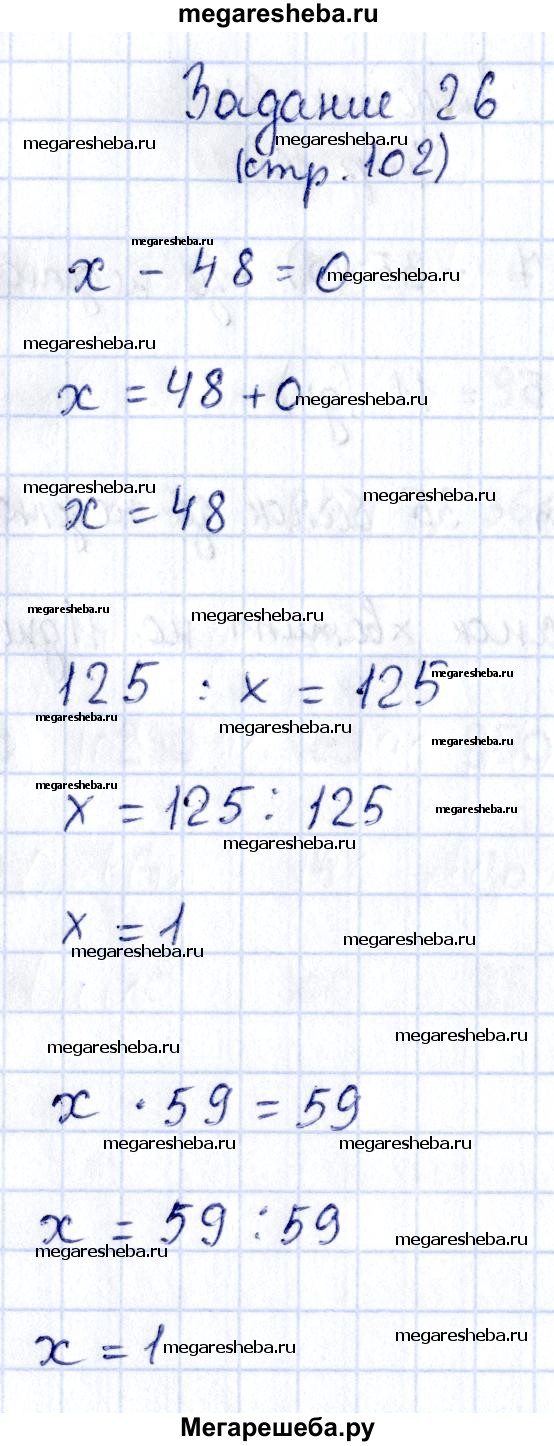 megaresheba.ru
Задание 26
megaresheba.ru megaresheba.ru
(стр. 102)
megaresheba.ru
x - 48 = 0 megaresheba.ru
megaresheba.ru
x = 48 + 0 megaresheba.ru
megaresheba.ru megaresheba.ru
x = 48
megaresheba.ru megaresheba.ru
125 : x = 125 megaresheba.ru
megaresheba.ru megaresheba.ru megaresheba.ru
megaresheba.ru
x = 125 : 125 megaresheba.ru
megaresheba.ru
x = 1
megaresheba.ru megaresheba.ru
megaresheba.ru
megaresheba.ru
x · 59 = 59
megaresheba.ru megaresheba.ru
x = 59 : 59 megaresheba.ru
megaresheba.ru
x = 1 megaresheba.ru megaresheba.ru
Мегарешеба.ру